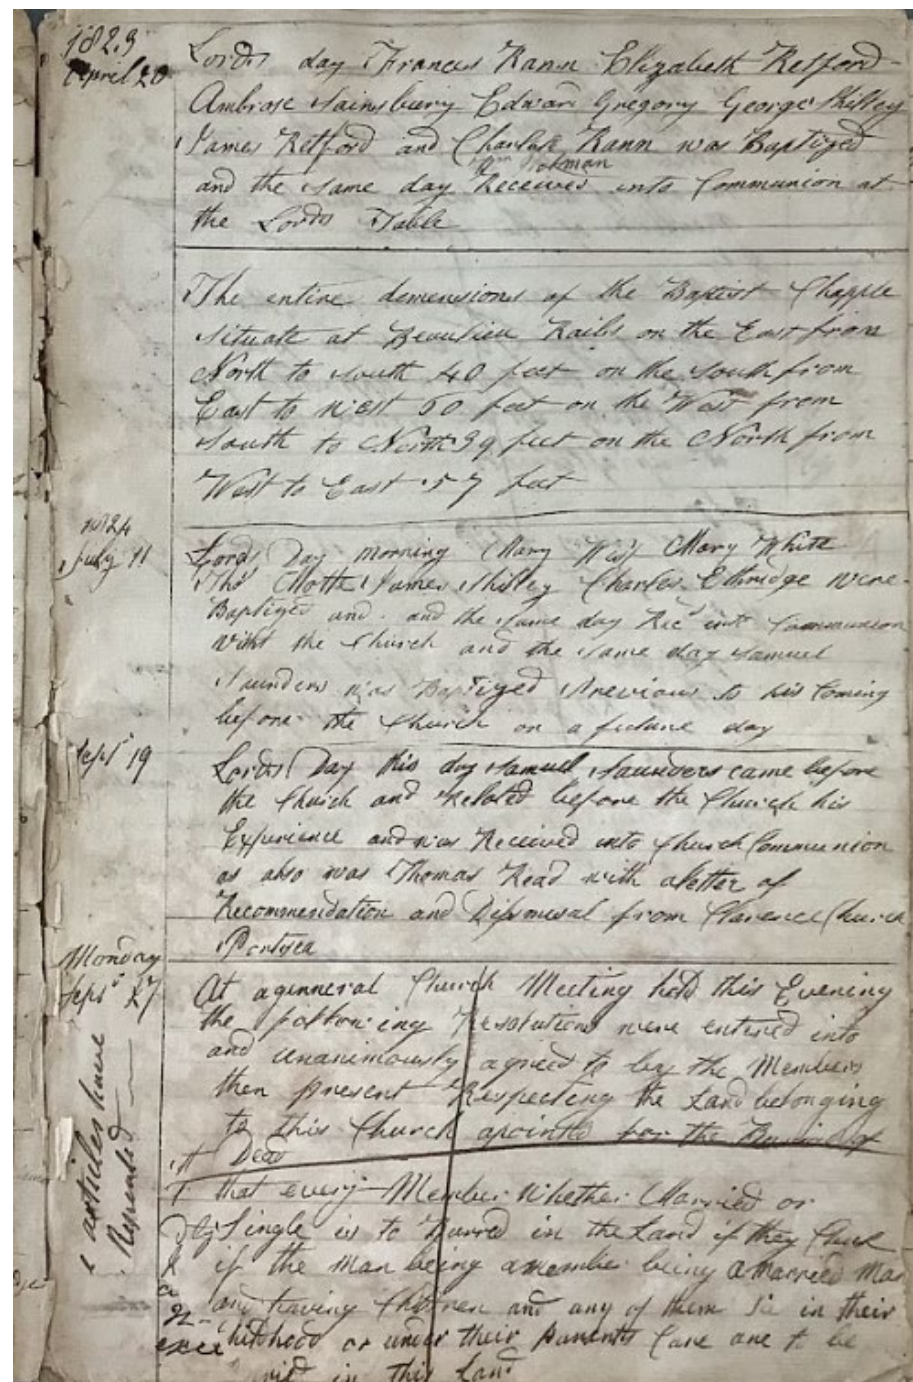 1823
April 20
Lords day Frances Rann Elizabeth Retford
Ambrose Sainsbury Edward Gregory George Shilley
James Retford and Charlotte Rann was Baptized
and the same day Received into Communion at
the Lords Table
The entire demensions of the Baptist Chapple
situate at Beaulieu Rails on the East from
North to South 40 feet on the South from
East to West 60 feet on the West from
South to North 39 feet on the North from
West to East 57 feet
1824
July 11
Lords Day morning Mary West Mary White
Thos Motte James Shilley Charles Ethridge were
Baptized and and the same day Recd into Communion
with the Church and the same day Samuel
Saunders was Baptized Previous to his Coming
before the Church on a future day
Sept 19
Lords Day this day Samuel Saunders came before
the Church and Related before the Church his
Experience and was Received into Church Communion
as also was Thomas Read with a letter of
Recommendation and Dismissal from Clarence Church
Portsea
Monday
Sept 27
At a genneral Church Meeting held this Evening
the following Resolutions were entired into
and unanimously agreed to by the Members
then present Respecting the Land belonging
to this Church apointed for the Burying of
Dead
articles have
Repented
that every Member Whether Married or
Single is to Burred in the Land if they Chuse
if the Man being a member being a married Man
and having Children and any of them Die in their
childhood or under their Parents Care are to be
in this Land